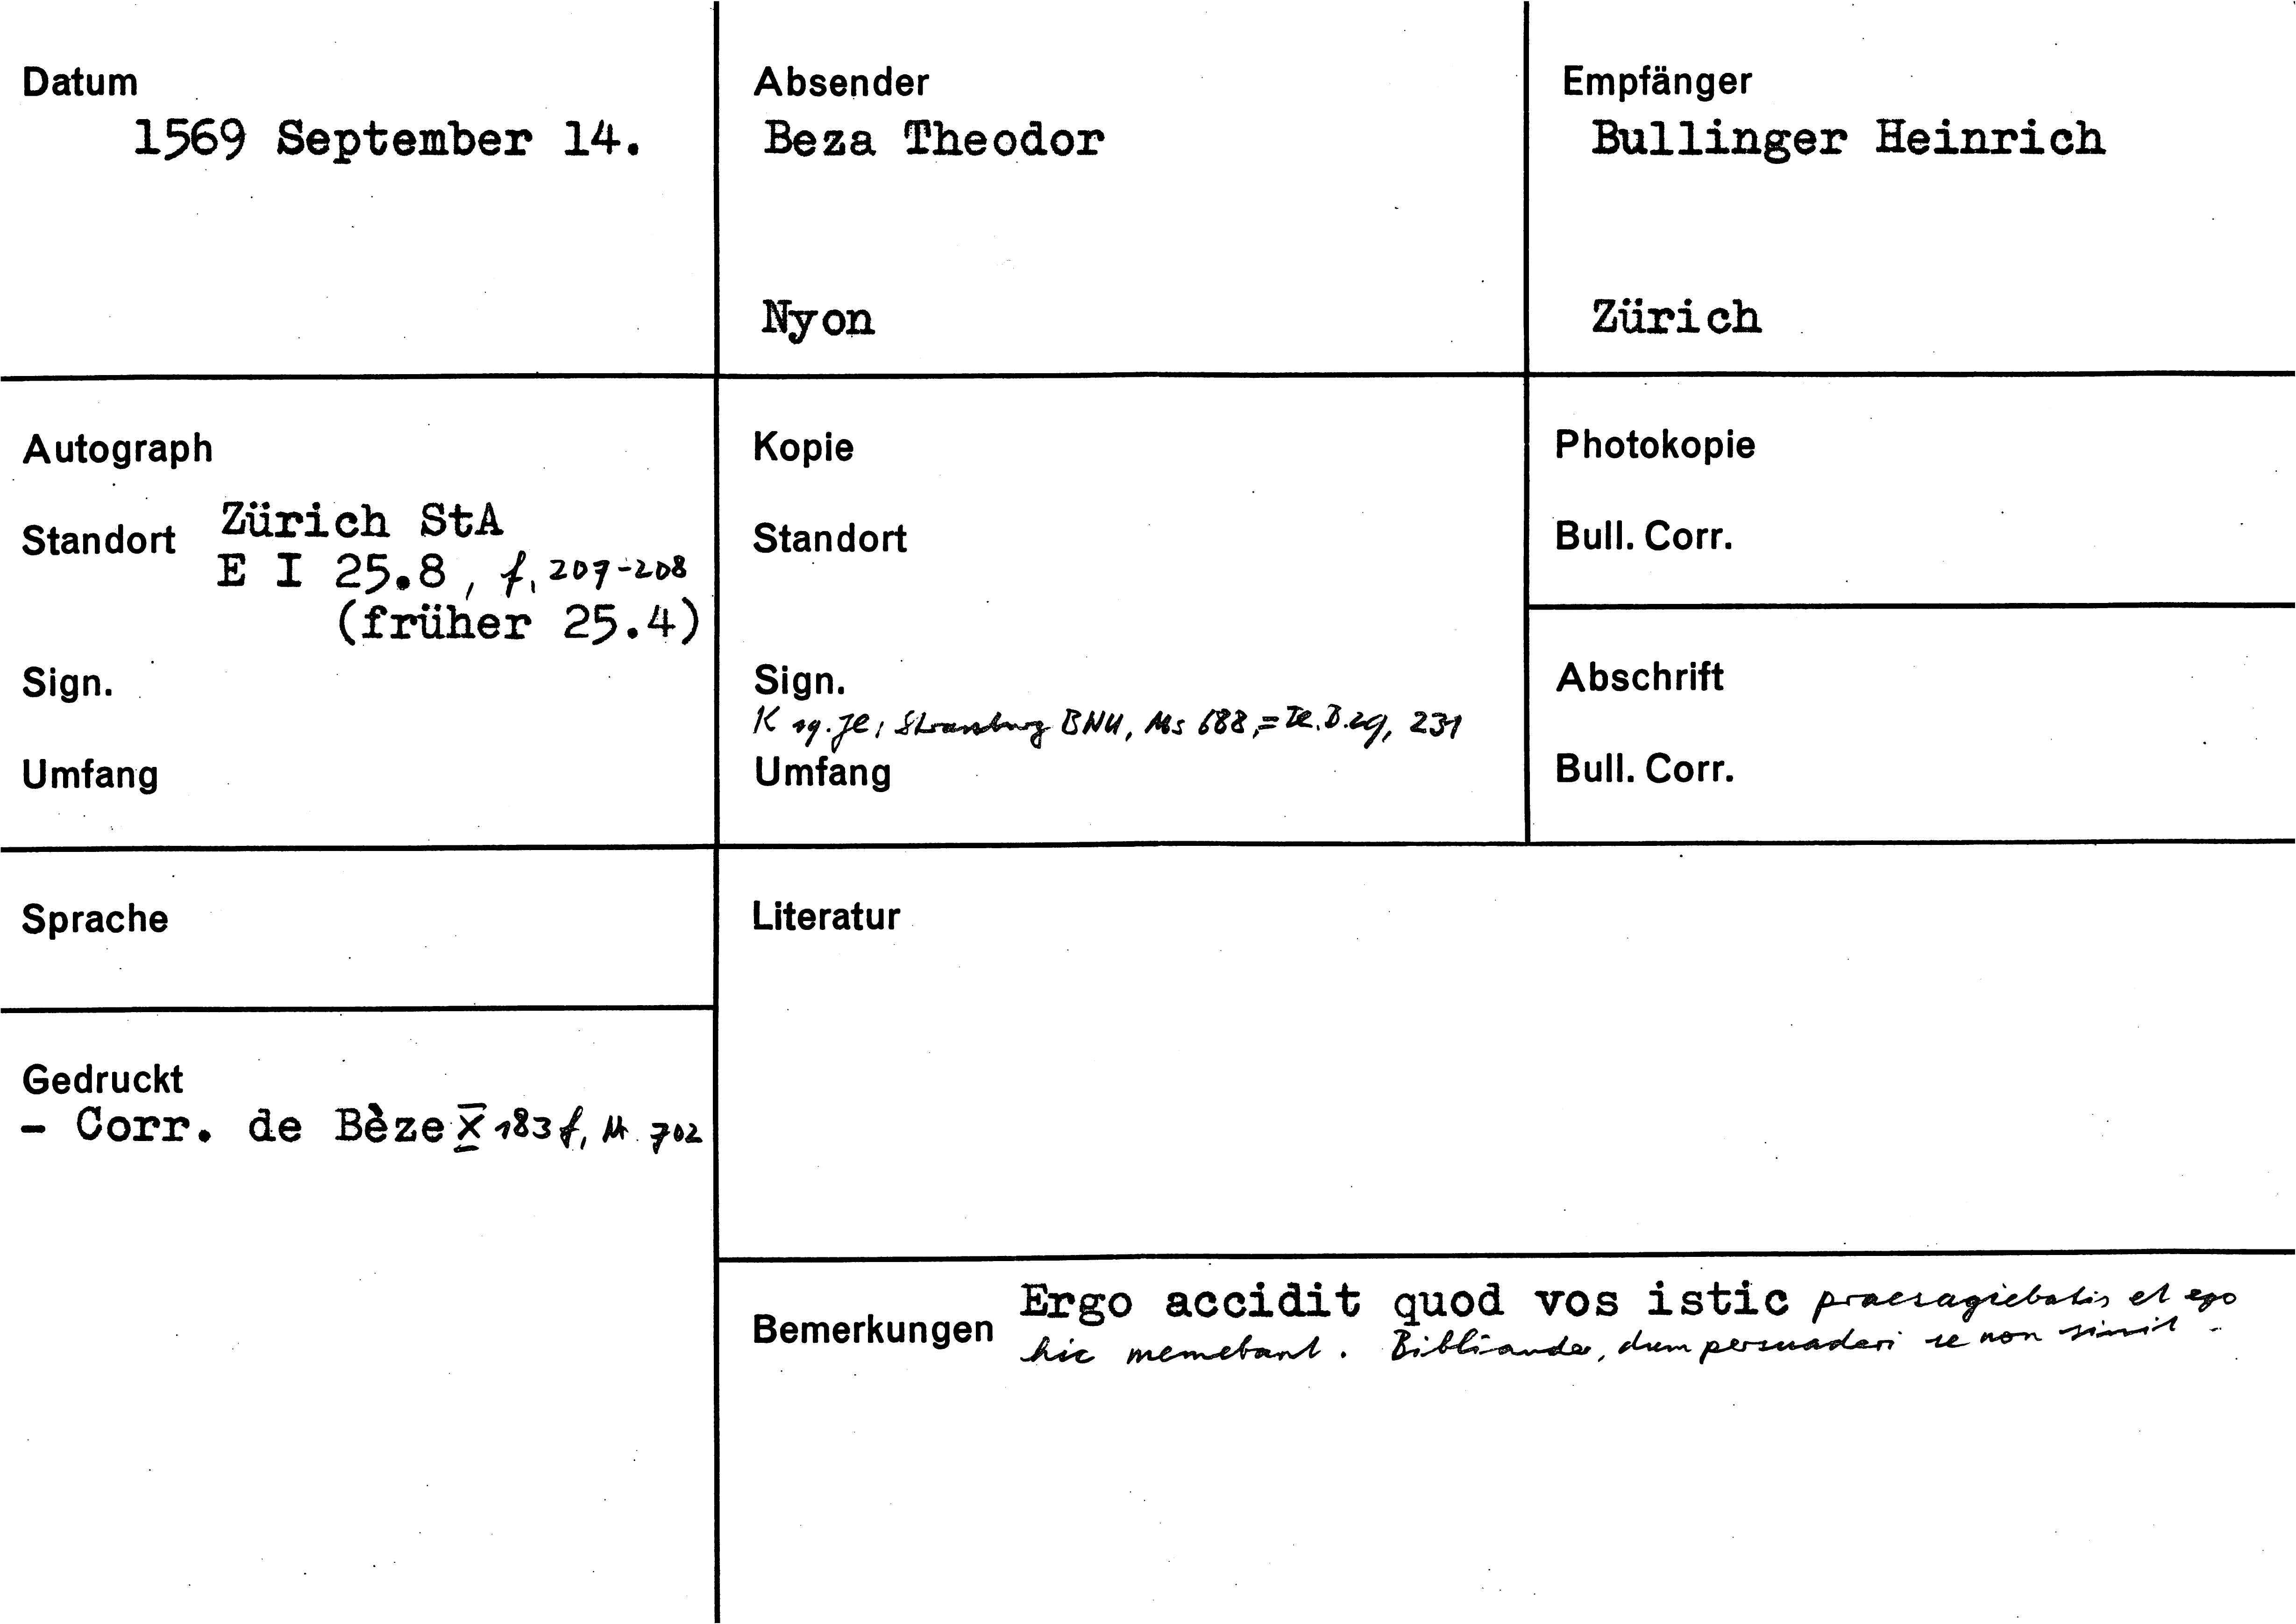 Datum
1569 September 14.
Absender
Beza Theodor
Nyon
Empfänger
Bullinger Heinrich
Zürich
Autograph
Standort Zürich StA
E I 25.8, f. 207-208
(früher 25.4)
Sign.
Umfang
Kopie
Standort
Sign.
Strassburg BNU, Ms 688, = 231
Umfang
Photokopie
Bull. Corr.
Abschrift
Bull. Corr.
Sprache
Gedruckt
- Corr. de Bèze X 183 f, Nr. 702
Literatur
Bemerkungen Ergo accidit quod vos istic praesagiebatis et ego
hic . Bibliander, dum persuaderi se non sinit